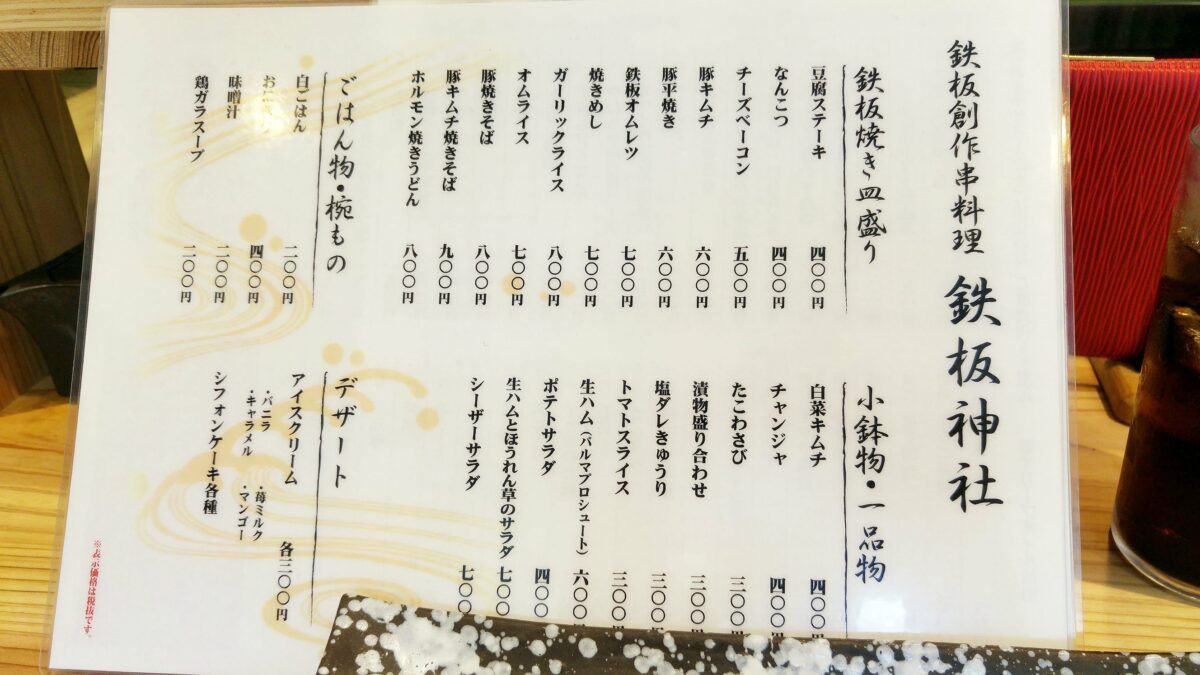 鉄板創作串料理 鉄板神社
鉄板焼き皿盛り
豆腐ステーキ 四〇〇円
なんこつ 四〇〇円
チーズベーコン 五〇〇円
豚キムチ 六〇〇円
豚平焼き 六〇〇円
鉄板オムレツ 七〇〇円
焼きめし 七〇〇円
ガーリックライス 八〇〇円
オムライス 七〇〇円
豚焼きそば 八〇〇円
豚キムチ焼きそば 九〇〇円
ホルモン焼きうどん 八〇〇円
小鉢物・一品物
白菜キムチ 四〇〇円
チャンジャ 四〇〇円
たこわさび 三〇〇
漬物盛り合わせ 三〇〇
塩ダレきゅうり 三〇〇
トマトスライス 三〇〇
生ハム(パルマプロシュート) 六〇〇
ポテトサラダ 四〇〇
生ハムとほうれん草のサラダ 七〇〇
シーザーサラダ 七〇〇
ごはん物・椀もの
白ごはん 二〇〇円
四〇〇円
味噌汁 二〇〇円
鶏ガラスープ 二〇〇円
デザート
アイスクリーム 各三〇〇円
・バニラ ・苺ミルク
・キャラメル ・マンゴー
シフォンケーキ各種
※表示価格は税抜です。